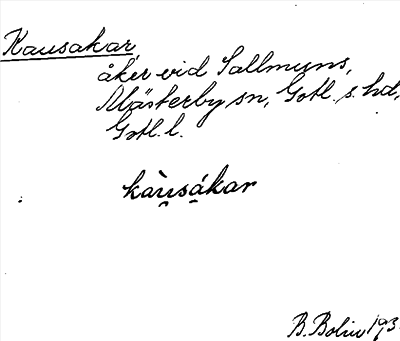 Kausakar,
åker vid Sallmuns,
Mästerby sn, Gotl. s. hd,
Gotl. l.
kàu̯sá̱kar
B. Bolin 193